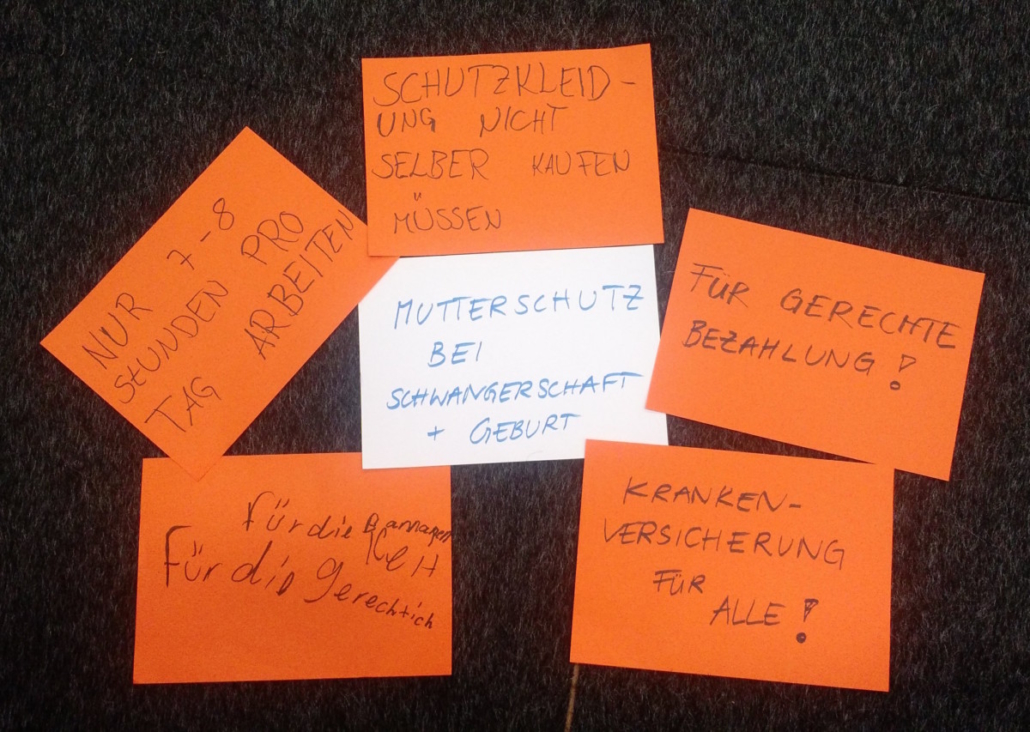 SCHUTZKLEID-
UNG NICHT
SELBER KAUFEN
MÜSSEN
NUR 7-8
StUNDEN PRO
TAG ARBEITEN
MUTTERSCHUTZ
BEI
SCHWANGERSCHAFT
+ GEBURT
FÜR GERECHTE
BEZAHLUNG!
für die
Für die gerechtich
KRANKEN-
VERSICHERUNG
FÜR
ALLE!